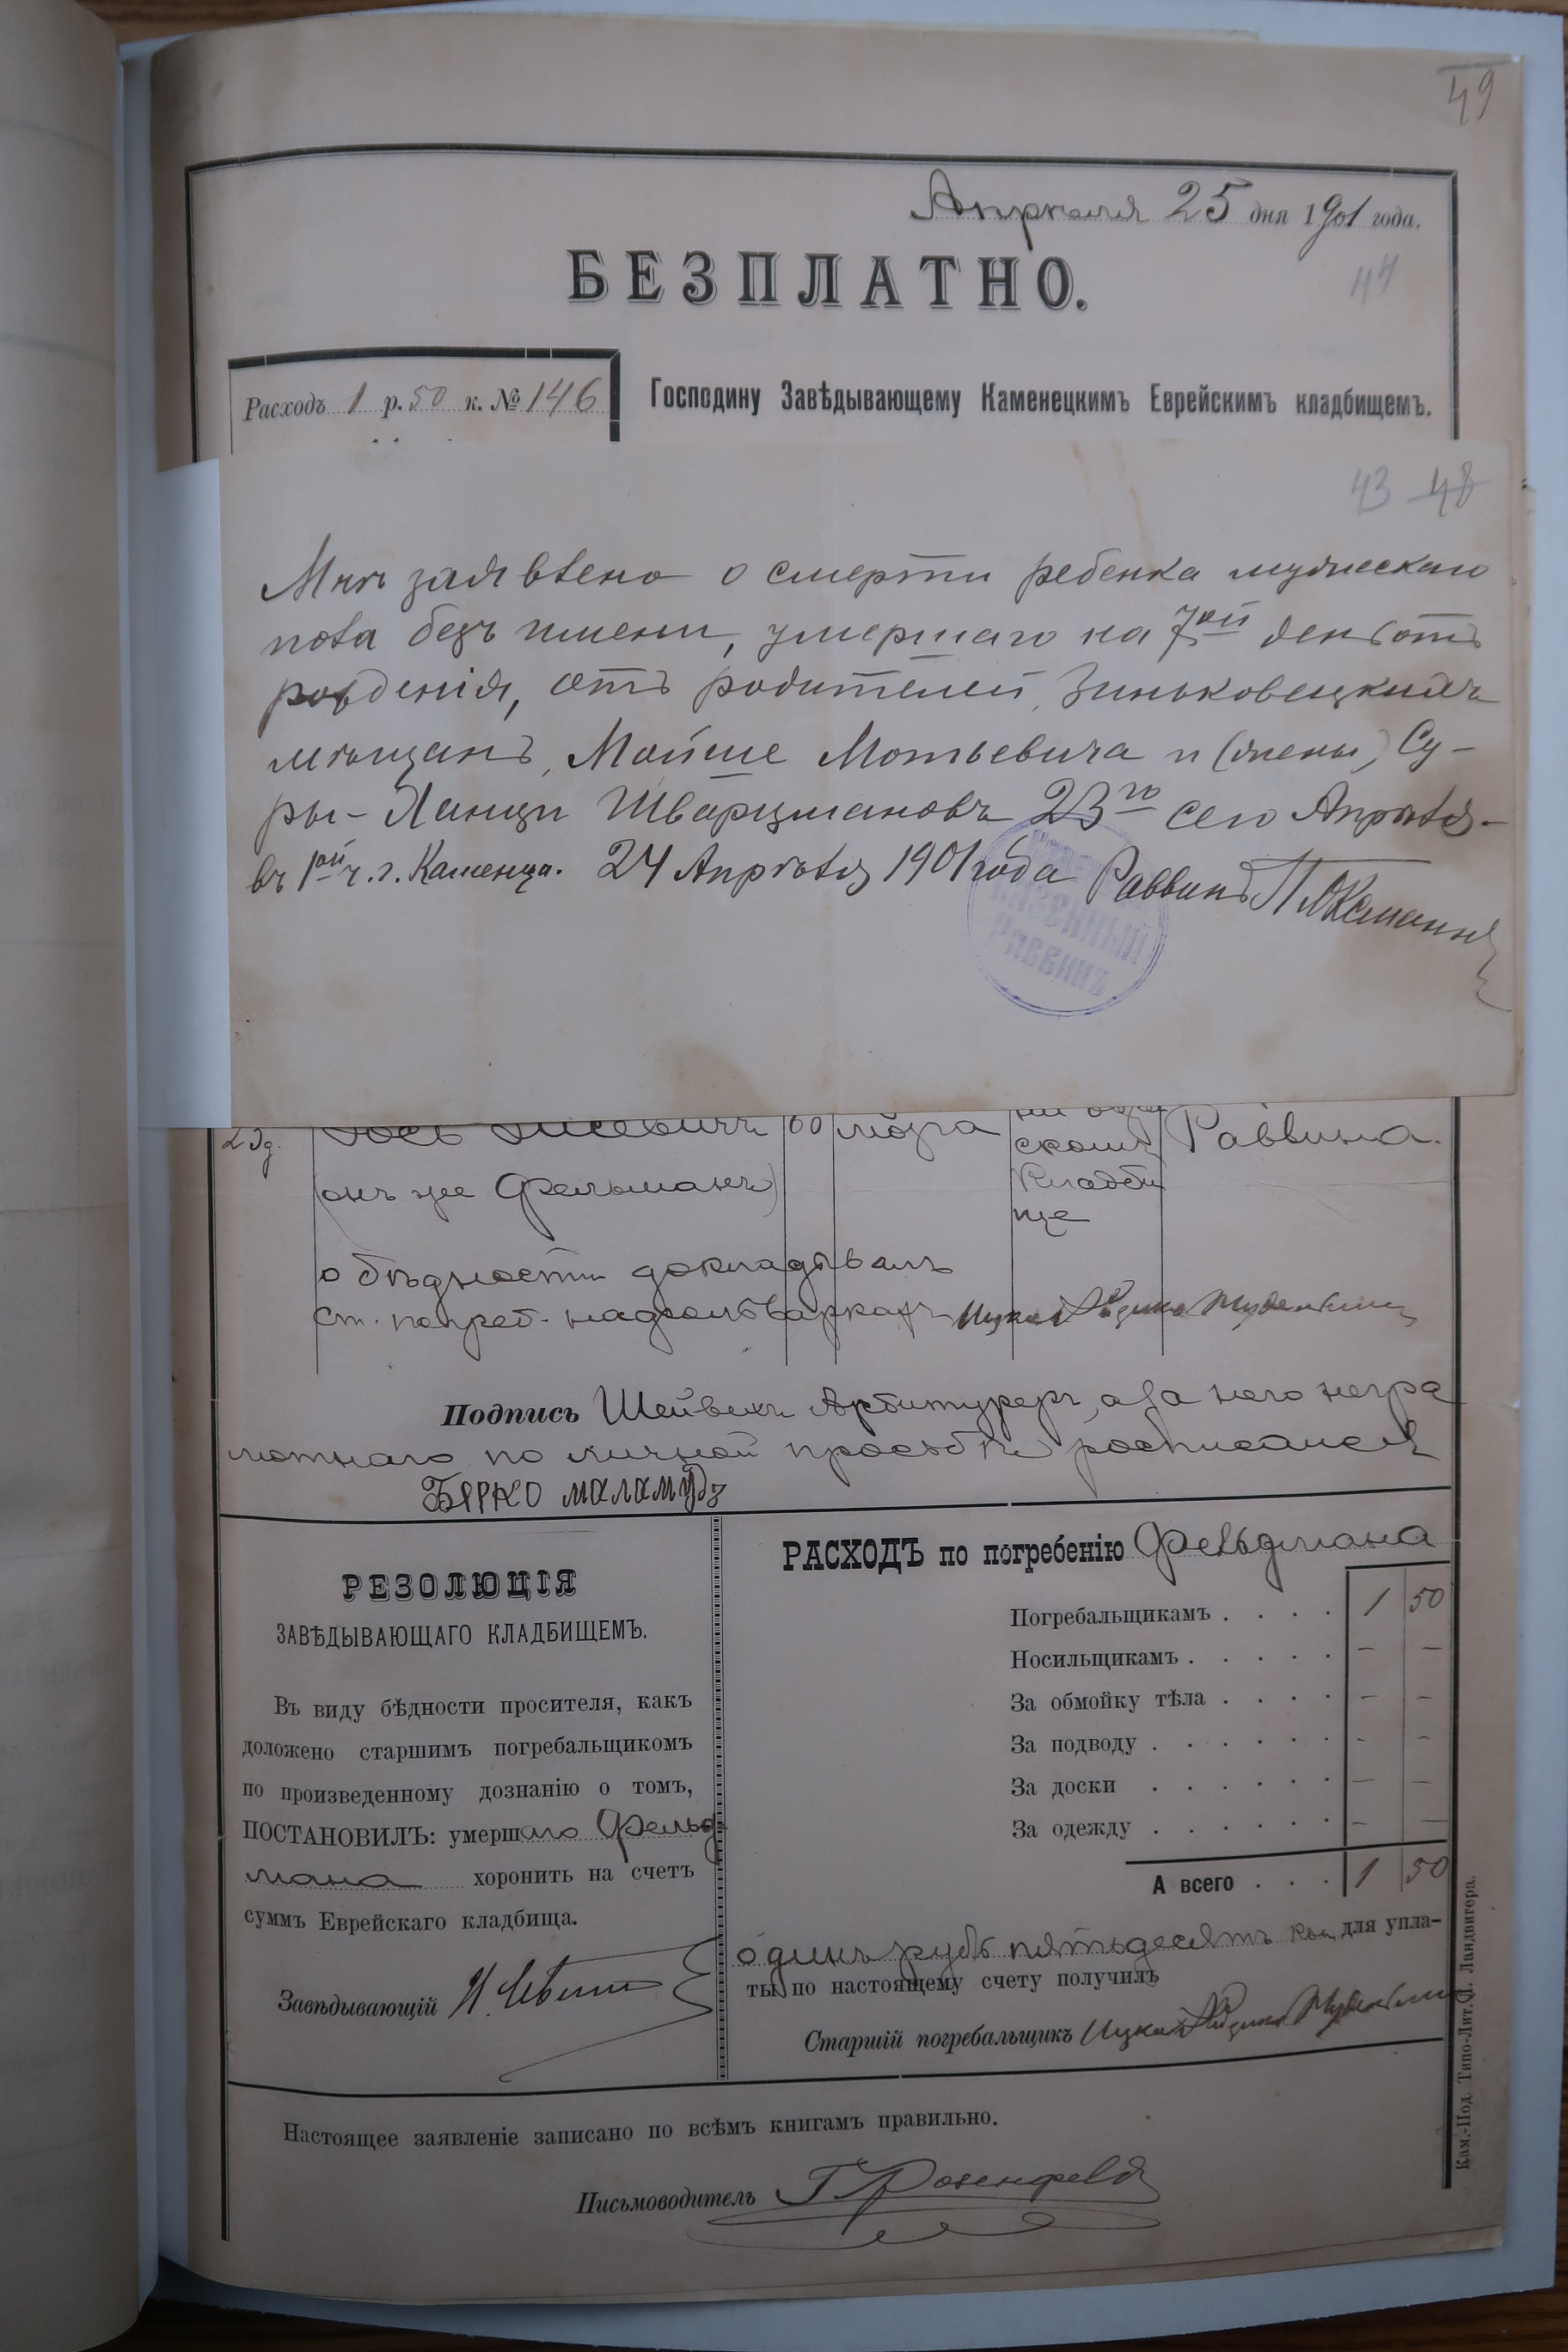 49
Апрѣля 25 дня 1901 года.
БЕЗПЛАТНО.
44
Расходъ 1 р. 50 к. № 146
Господину Завѣдывающему Каменецкимъ Еврейскимъ кладбищемъ.
43 48
Мнѣ заявлено о смерти ребенка мужескаго
пола безъ имени, умершаго на 7ой день отъ
рожденія, отъ родителей, Зиньковецкихъ
мѣщанъ, Мойше Мотьевича и (жены) Су-
ры-Ханци Шварцмановъ 23го сего Апрѣля
въ 1ой ч. г. Каменца. 24 Апрѣля 1901 года Раввинъ
КАЗЕННЫЙ
РАВВИНЪ
23 60 мозга Раввина.
скомъ
(онъ же Фельманъ) кладби
ще
о бѣдности докладывалъ
ст. погреб. Ицко
Подпись Шейвехъ Арбитуреръ, а за него негра
мотнаго по личной просьбѣ росписался
Берко маламудъ
РЕЗОЛЮЦІЯ
ЗАВѢДЫВАЮЩАГО КЛАДБИЩЕМЪ.
Въ виду бѣдности просителя, какъ
доложено старшимъ погребальщикомъ
по произведенному дознанію о томъ,
ПОСТАНОВИЛЪ: умершаго Фельд
мана хоронить на счетъ
суммъ Еврейскаго кладбища.
Завѣдывающій
РАСХОДЪ по погребенію Фельдмана
Погребальщикамъ . . . . 1 50
Носильщикамъ . . . . . — —
За обмойку тѣла . . . . — —
За подводу . . . . . . - -
За доски . . . . . . — —
За одежду . . . . . . — —
А всего . . . 1 50
одинъ рубъ пятьдесятъ коп для упла-
ты по настоящему счету получилъ
Старшій погребальщикъ Ицко
Кам.-Под. Типо-Лит. Д. Ландвигера.
Настоящее заявленіе записано по всѣмъ книгамъ правильно.
Письмоводитель Г. Розенфельд